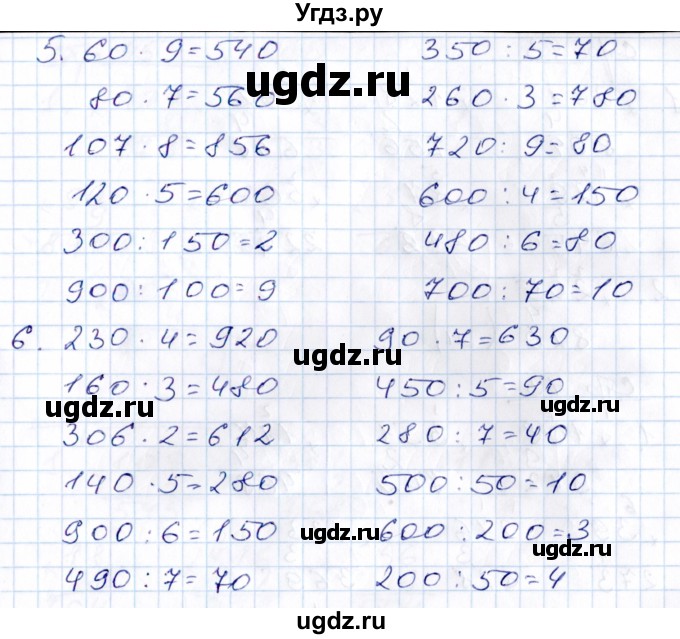 Угдз.ру
5. 60 · 9 = 540   350 : 5 = 70
80 · 7 = 560   260 · 3 = 780
ugdz.ru
107 · 8 = 856   720 : 9 = 80
120 · 5 = 600   600 : 4 = 150
300 : 150 = 2   480 : 6 = 80
900 : 100 = 9   700 : 70 = 10
6. 230 · 4 = 920   90 · 7 = 630
ugdz.ru
160 · 3 = 480   450 : 5 = 90
ugdz.ru   ugdz.ru
306 · 2 = 612   280 : 7 = 40
140 · 5 = 280   500 : 50 = 10
900 : 6 = 150   600 : 200 = 3
ugdz.ru   ugdz.ru
490 : 7 = 70   200 : 50 = 4